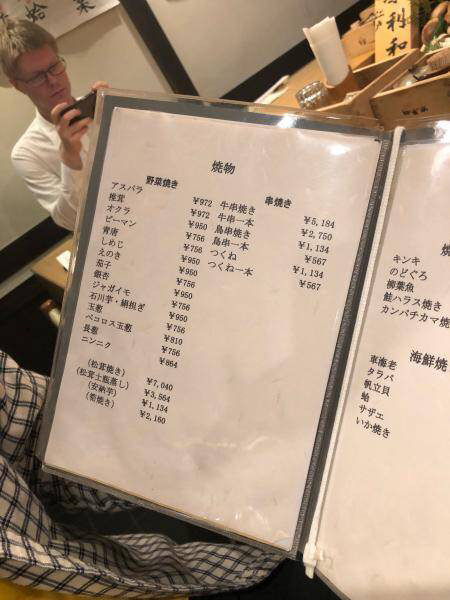 焼物
野菜焼き
アスパラ
椎茸
オクラ
ピーマン
青唐
しめじ
えのき
茄子
銀杏
ジャガイモ
石川芋・絹担ぎ
玉葱
ペコロス玉葱
長葱
ニンニク
(松茸焼き)
(松茸土瓶蒸し)
(安納芋)
(筍焼き)
¥972
¥972
¥950
¥756
¥950
¥756
¥756
¥950
¥950
¥756
¥950
¥756
¥810
¥756
¥864
¥7,040
¥3,564
¥1,134
¥2,160
串焼き
牛串焼き ¥5,184
牛串一本 ¥2,750
鳥串焼き ¥1,134
鳥串一本 ¥567
つくね ¥1,134
つくね一本 ¥567
焼
キンキ
のどぐろ
柳葉魚
鮭ハラス焼き
カンパチカマ焼
海鮮焼
車海老
タラバ
帆立貝
蛤
サザエ
いか焼き
利和
蛤